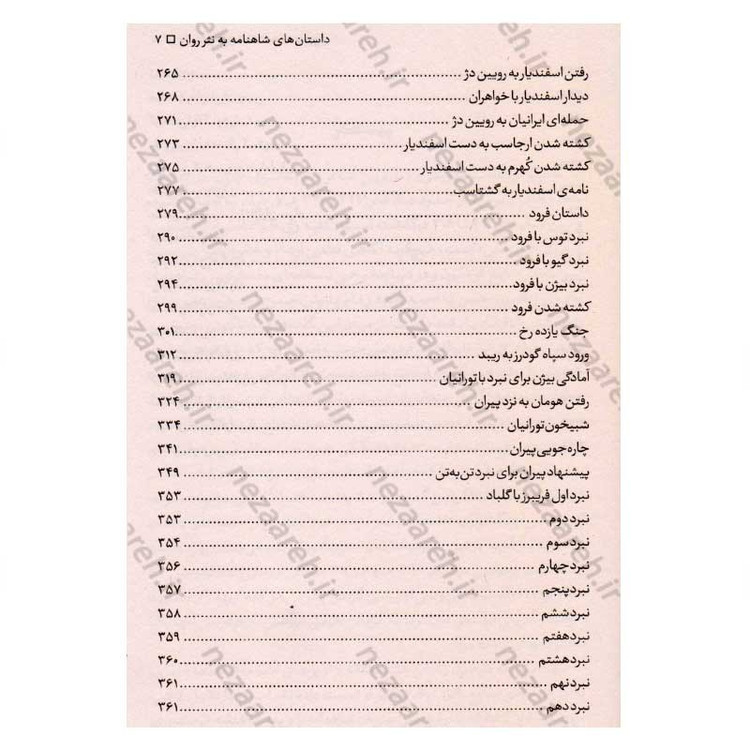 داستان‌های شاهنامه به نثر روان □ ۷
رفتن اسفندیار به رویین دژ ۲۶۵
دیدار اسفندیار با خواهران ۲۶۸
حمله‌ای ایرانیان به رویین دژ ۲۷۱
کشته شدن ارجاسب به دست اسفندیار ۲۷۳
کشته شدن کُهرم به دست اسفندیار ۲۷۵
نامه‌ی اسفندیار به گشتاسب ۲۷۷
داستان فرود ۲۷۹
نبرد توس با فرود ۲۹۰
نبرد گیو با فرود ۲۹۲
نبرد بیژن با فرود ۲۹۴
کشته شدن فرود ۲۹۹
جنگ یازده رخ ۳۰۱
ورود سپاه گودرز به ریبد ۳۱۲
آمادگی بیژن برای نبرد با تورانیان ۳۱۹
رفتن هومان به نزد پیران ۳۲۴
شبیخون تورانیان ۳۳۴
چاره‌جویی پیران ۳۴۱
پیشنهاد پیران برای نبرد تن‌به‌تن ۳۴۹
نبرد اول فریبرز با گلباد ۳۵۳
نبرد دوم ۳۵۳
نبرد سوم ۳۵۴
نبرد چهارم ۳۵۶
نبرد پنجم ۳۵۷
نبرد ششم ۳۵۸
نبرد هفتم ۳۵۹
نبرد هشتم ۳۶۰
نبرد نهم ۳۶۱
نبرد دهم ۳۶۱
nezaareh.ir